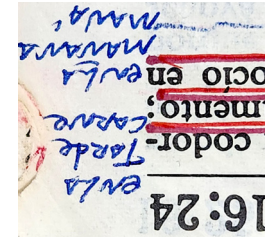 16:24
codor-
mento;
ocío en
en LA
TARDe
CARNe
en LA
MAÑANA
MANÁ